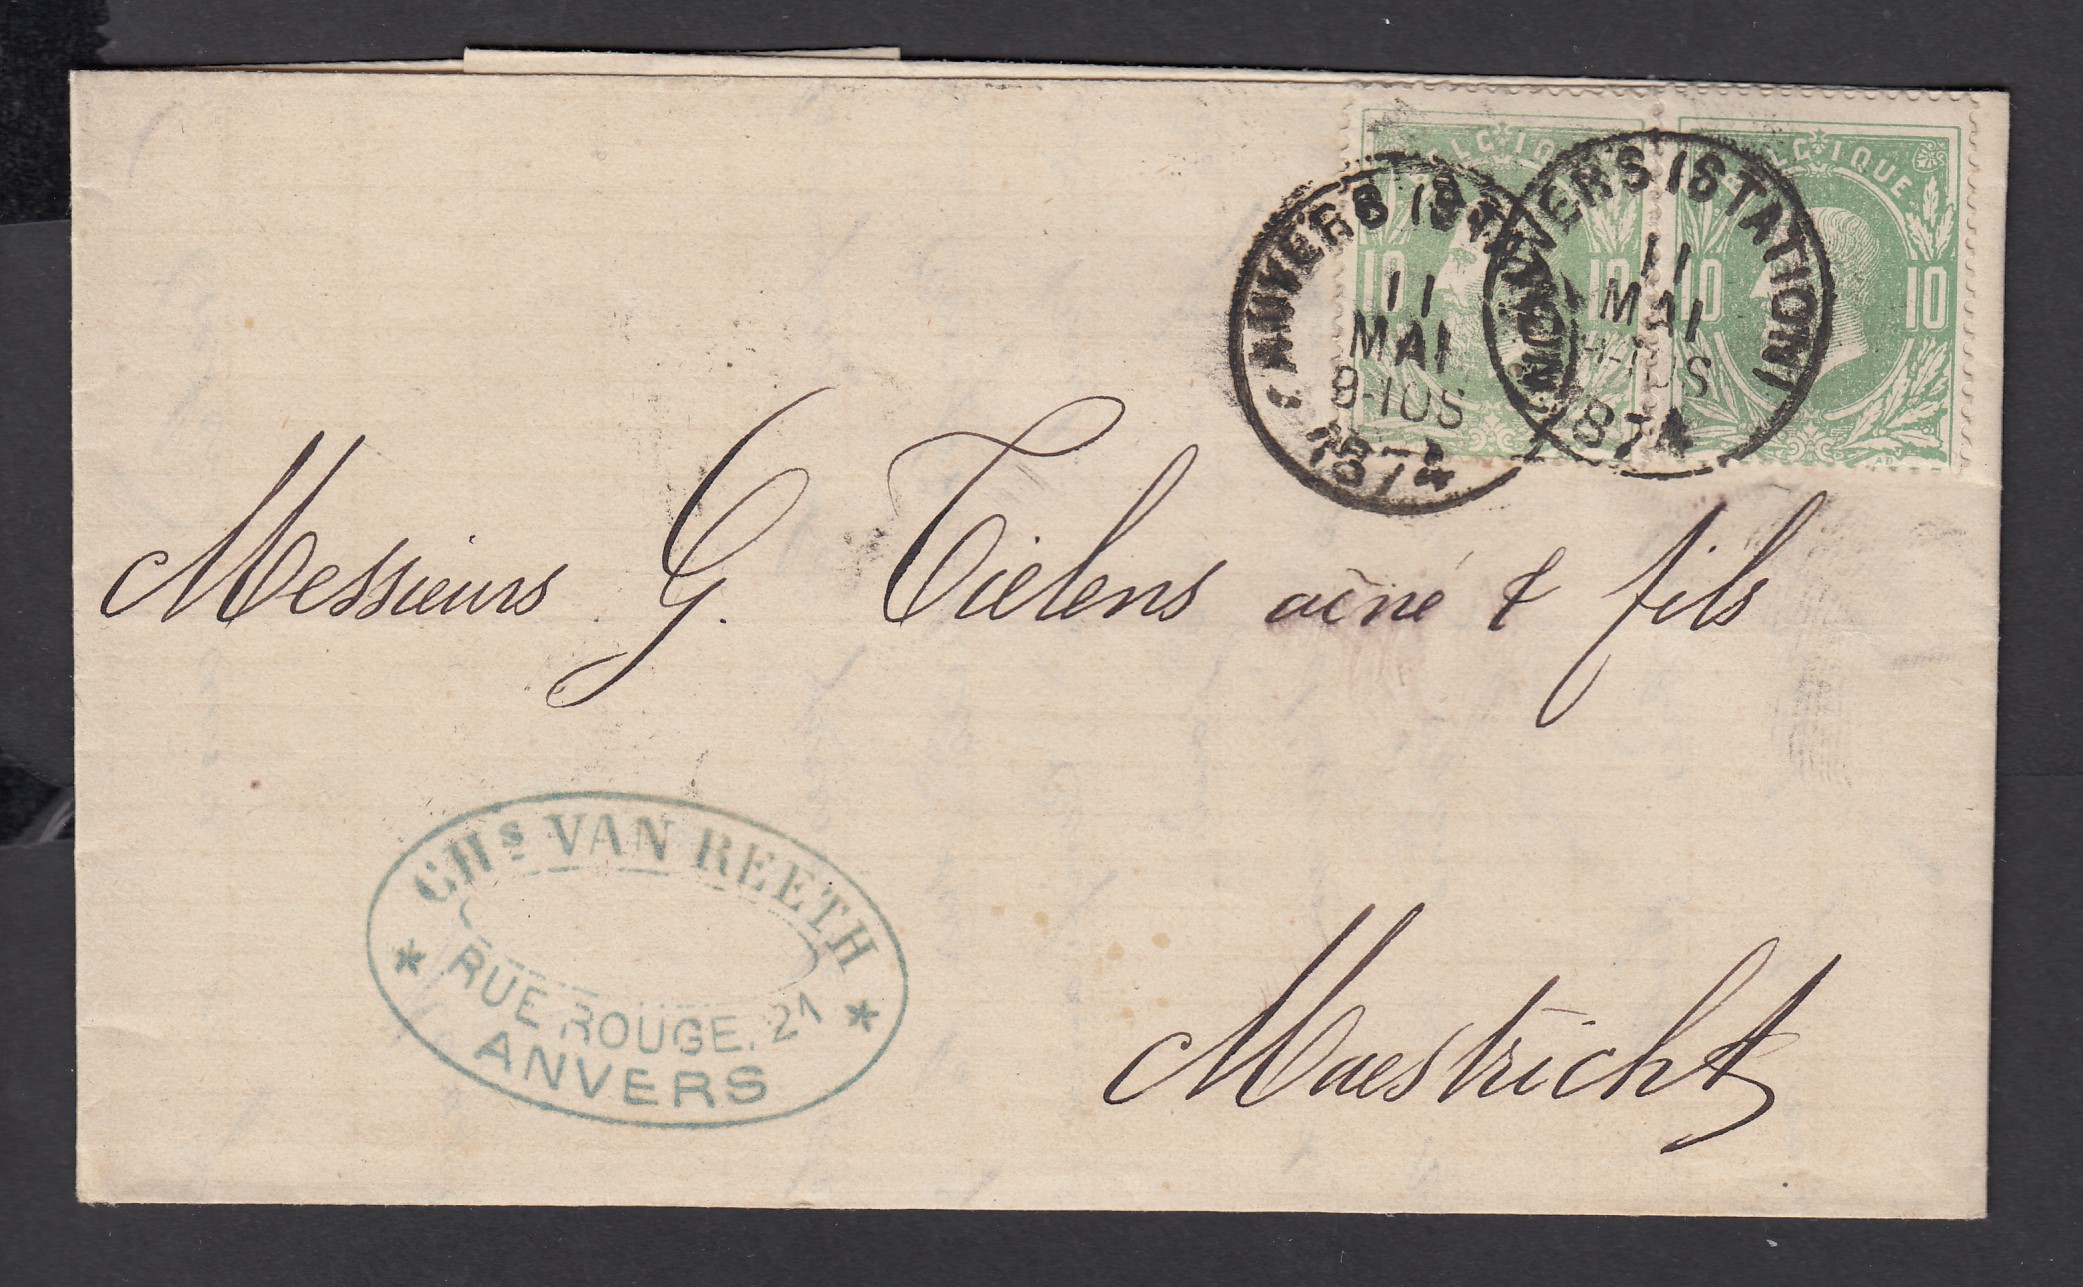 BELGIQUE
10 10
BELGIQUE
10 10
ANVERS (STATION)
11
MAI
9-10S
1874
ANVERS (STATION)
11
MAI
1874
Messieurs G. Tielens aîné & fils
CHs VAN REETH
RUE ROUGE, 21
ANVERS
Maestricht